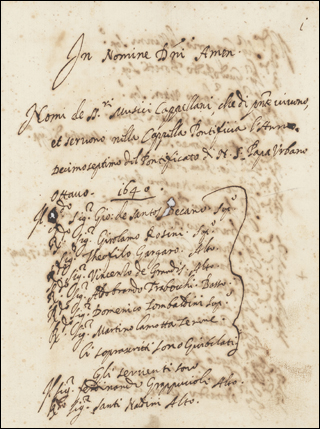 In Nomine Dni Amen.
Nomi de SS.ri Musici Cappellani, che di pnte vivono,
et servono nella Cappella Pontificia l'Anno
Decimosettimo del Pontificato di N. S. Papa Urbano
Ottavo. 1640.
Sig.r Gio: de Santos Decano Sop.no
Sig.r Girolamo Rosini Sop.no
Sig.r Theofilo Gargaro Alto.
Sig.r Vincenzo de Grandis Alto
Sig.r Odoardo Basso.
Sig.r Domenico Lombardini Sop.no
Sig.r Martino Lamotta Tenore
Li soprascritti sono Giubilati
Gli servienti sono
Sig.r Ferdinando Grappuccioli Alto.
Sig.r Santi Naldini Alto.